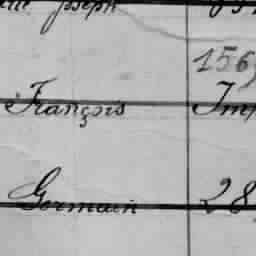 Joseph
156
François Im
Germain 28